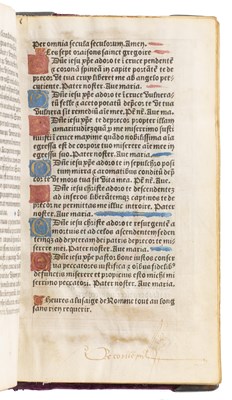 Per omnia secula seculorum. Amen.
Les sept oraisons saint gregoire
Dñe iesu xp̄e adoro te ĩ cruce pendentẽ
⁊ coronã spineã in capite portãtẽ te de
precor vt tua crux liberet me ab angelo per
cutiente. Pater noster. Aue maria.
Dñe iesu xp̄e adoro te ĩ cruce vulnera
tũ felle ⁊ aceto potatũ dep̄cor te vt tua
vulnera sit remediũ aĩe mee. P̃r ñr. Aue maria
Dñe iesu xp̄e te deprecor propter illam
amaritudinẽ quã p me miserrimo susti
nuisti in cruce maxime quãdo aĩa tua
egressa est de corpore tuo miserere aĩe mee in
egressu suo. Pater noster. Aue maria.
Dñe iesu xp̄e adoro te in sepulchro posi
tum mirra ⁊ aromatibus conditũ de
p̄cor te vt tua mors sit vita mea. P̃r ñr. Aue m
Dñe iesu christe adoro te descendentẽ
ad inferos liberantemq; captiuos te de
precor ne permittas me illuc introire. Pater
noster. Aue maria.
Dñe iesu christe adoro te resurgentẽ a
mortuis et ad celos ascendentem seden
temq; ad dexteram dei patris dep̄cor te mise
rere mei. Pater noster. Aue maria.
Dñe iesu xp̄e pastor bone iustos conser
ua peccatores iustifica oĩbus fidelib9
defunctis miserere et propicius esto michi mi
serrimo peccatori. Pater noster. Aue maria
Heures a lusaige de Romme tout au long
sans rien requerir